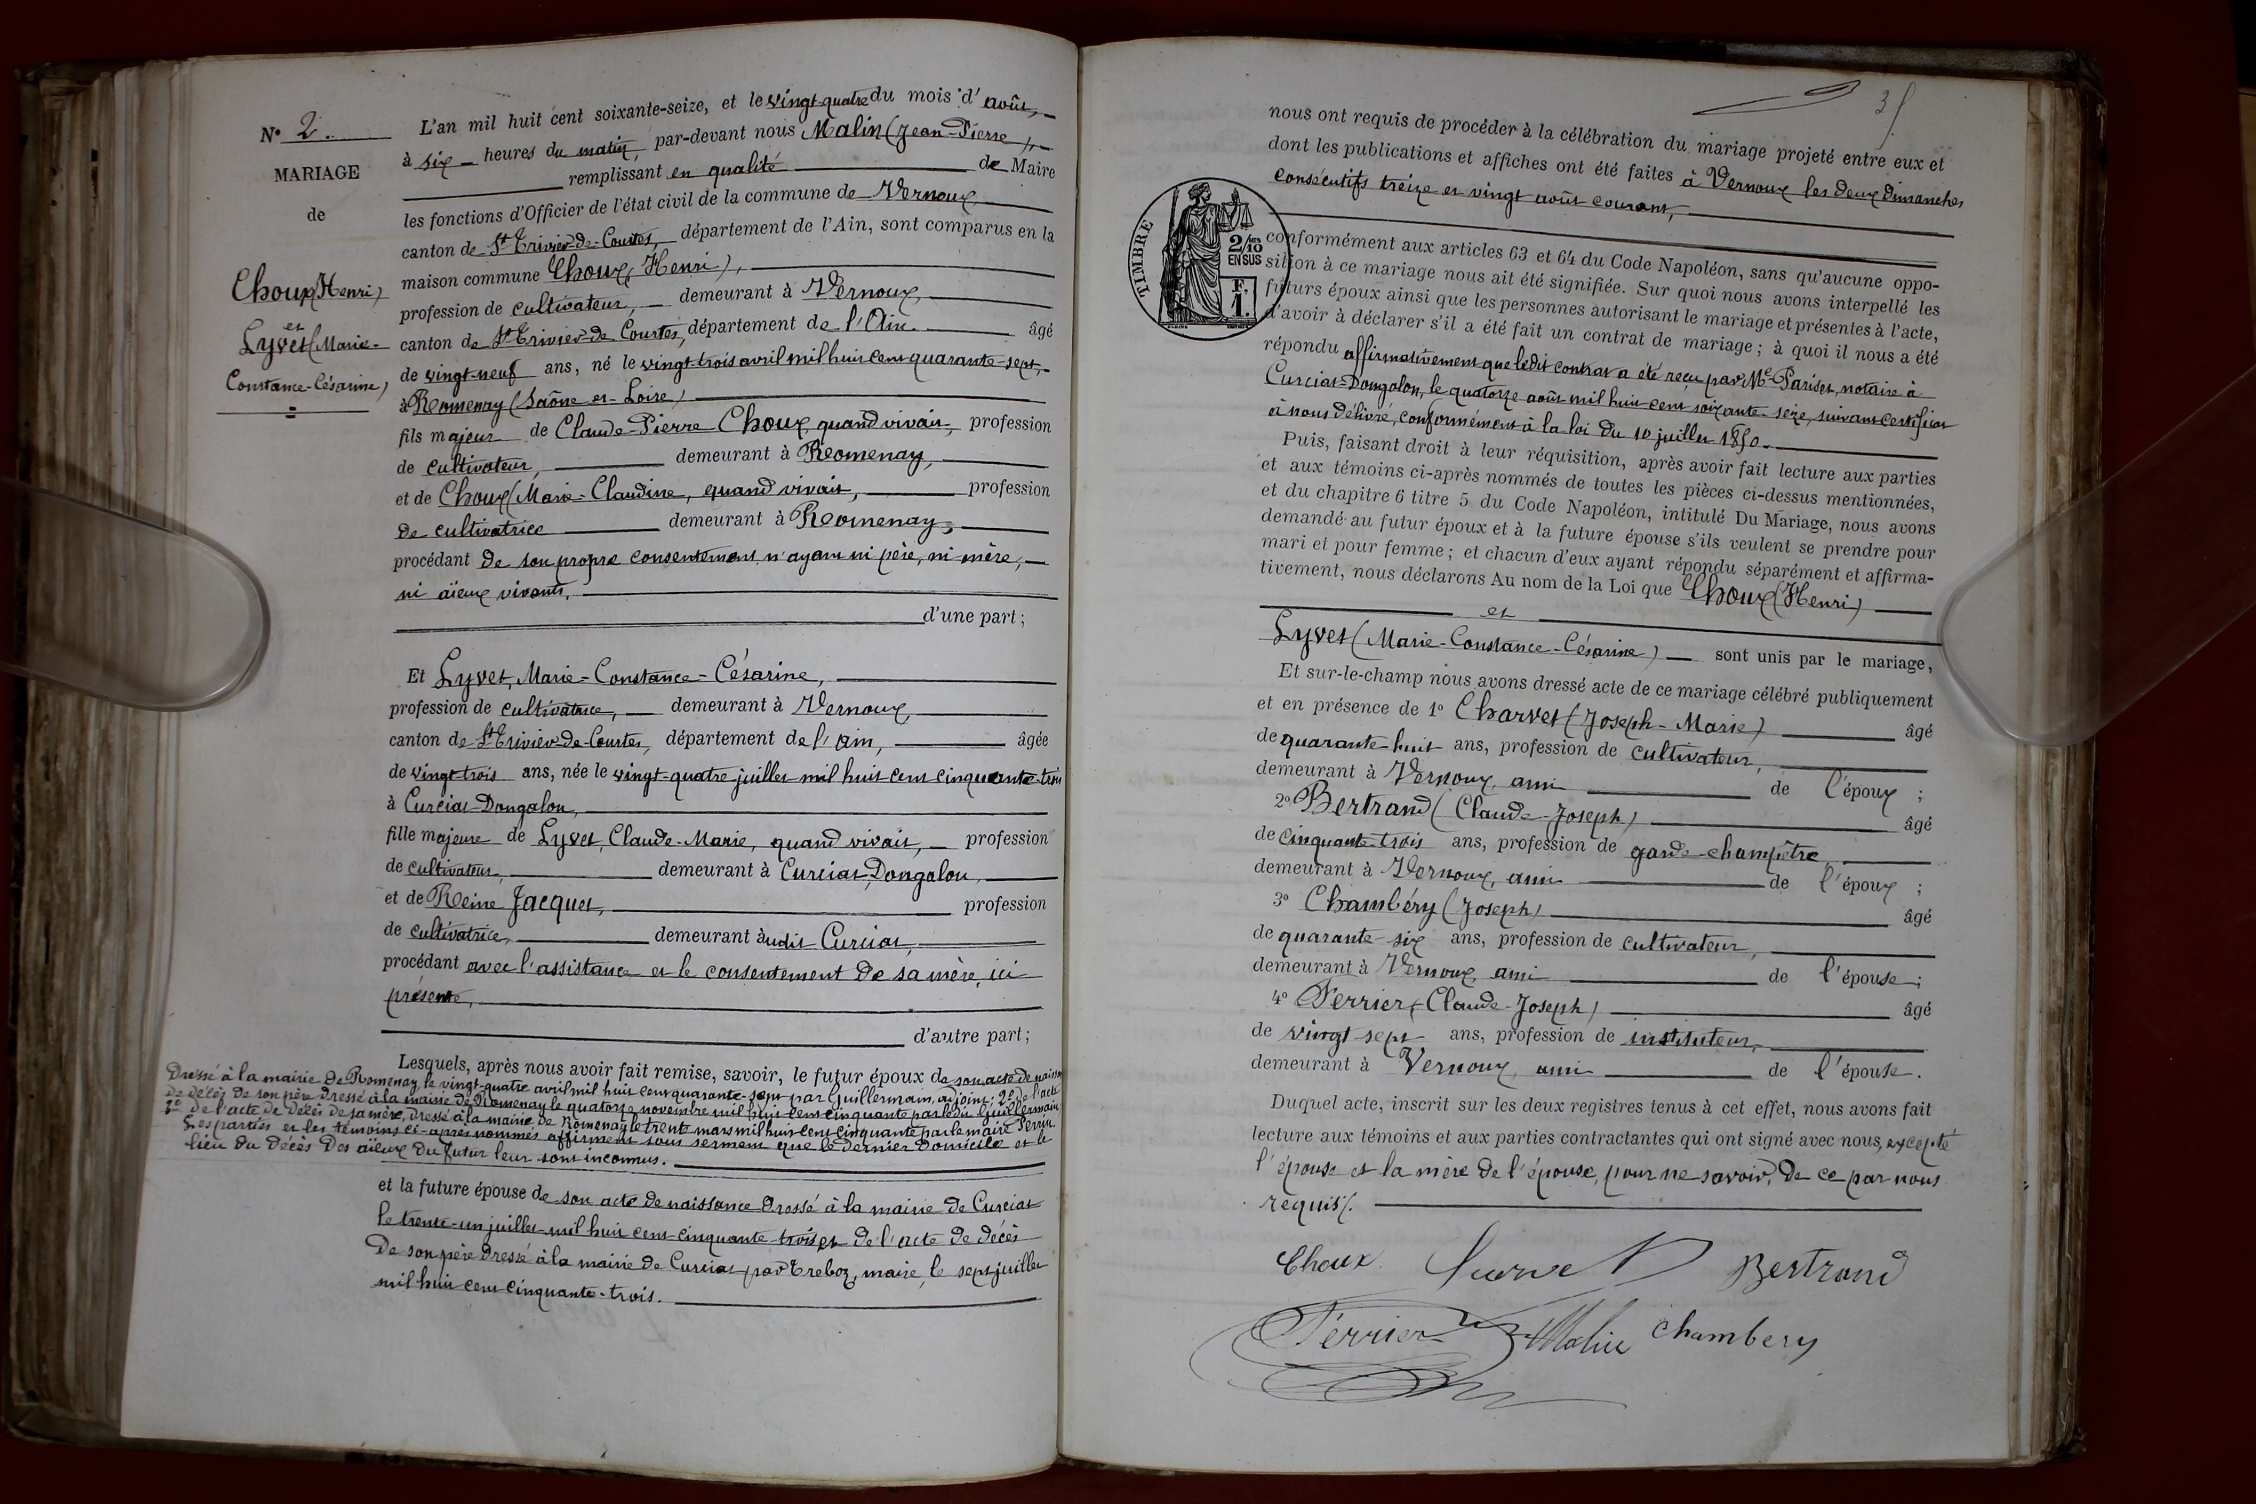 N° 2.
MARIAGE
de
Choux (Henri)
et
Lyvet (Marie-
Constance-Césarine)
L'an mil huit cent soixante-seize, et le vingt-quatre du mois d'août,
à six heures du matin, par-devant nous Malin (Jean-Pierre),
remplissant en qualité de Maire
les fonctions d'Officier de l'état civil de la commune de Vernoux,
canton de St Trivier-de-Courtes, département de l'Ain, sont comparus en la
maison commune Choux (Henri),
profession de cultivateur, demeurant à Vernoux,
canton de St Trivier-de-Courtes, département de l'Ain. âgé
de vingt-neuf ans, né le vingt-trois avril mil huit cent quarante-sept,
à Romenay (Saône-et-Loire)
fils majeur de Claude-Pierre Choux, quand vivait, profession
de cultivateur, demeurant à Romenay,
et de Choux (Marie-Claudine, quand vivait, profession
de cultivatrice demeurant à Romenay,
procédant de son propre consentement, n'ayant ni père, ni mère,
ni aïeux vivants,
d'une part;
Et Lyvet, Marie-Constance-Césarine,
profession de cultivatrice, demeurant à Vernoux,
canton de St Trivier-de-Courtes, département de l'Ain, âgée
de vingt-trois ans, née le vingt-quatre juillet mil huit cent cinquante-trois
à Curciat-Dongalon,
fille majeure de Lyvet, Claude-Marie, quand vivait, profession
de cultivateur, demeurant à Curciat-Dongalon,
et de Reine Jacquet, profession
de cultivatrice, demeurant audit Curciat,
procédant avec l'assistance et le consentement de sa mère, ici
présente,
d'autre part;
Lesquels, après nous avoir fait remise, savoir, le futur époux de son acte de naissance
Dressé à la mairie de Romenay, le vingt-quatre avril mil huit cent quarante-sept par Guillermain, adjoint; 2° de l'acte
de décès de son père dressé à la mairie de Romenay le quatorze novembre mil huit cent cinquante par ledit Guillermain
3° de l'acte de décès de sa mère, dressé à la mairie de Romenay le trente mars mil huit cent cinquante par le maire Perrin.
Les parties et les témoins ci-après nommés affirment sous serment que le dernier domicile et le
lieu du décès des aïeux du futur leur sont inconnus.
et la future épouse de son acte de naissance dressé à la mairie de Curciat
le trente-un juillet mil huit cent cinquante-trois et de l'acte de décès
de son père dressé à la mairie de Curciat par Treboz, maire, le sept juillet
mil huit cent cinquante-trois.
nous ont requis de procéder à la célébration du mariage projeté entre eux et
dont les publications et affiches ont été faites à Vernoux les deux dimanches
consécutifs treize et vingt août courant,
TIMBRE
2/10 EN SUS
F. 1.
conformément aux articles 63 et 64 du Code Napoléon, sans qu'aucune oppo-
sition à ce mariage nous ait été signifiée. Sur quoi nous avons interpellé les
futurs époux ainsi que les personnes autorisant le mariage et présentes à l'acte,
d'avoir à déclarer s'il a été fait un contrat de mariage; à quoi il nous a été
répondu affirmativement que ledit contrat a été reçu par Me Pariset, notaire à
Curciat-Dongalon, le quatorze août mil huit cent soixante-seize, suivant certificat
à nous délivré, conformément à la loi du 10 juillet 1850.
Puis, faisant droit à leur réquisition, après avoir fait lecture aux parties
et aux témoins ci-après nommés de toutes les pièces ci-dessus mentionnées,
et du chapitre 6 titre 5 du Code Napoléon, intitulé Du Mariage, nous avons
demandé au futur époux et à la future épouse s'ils veulent se prendre pour
mari et pour femme; et chacun d'eux ayant répondu séparément et affirma-
tivement, nous déclarons Au nom de la Loi que Choux (Henri)
et
Lyvet (Marie-Constance-Césarine) sont unis par le mariage,
Et sur-le-champ nous avons dressé acte de ce mariage célébré publiquement
et en présence de 1° Charvet (Joseph-Marie) âgé
de quarante-huit ans, profession de cultivateur,
demeurant à Vernoux, ami de l'époux;
2° Bertrand (Claude-Joseph) âgé
de cinquante-trois ans, profession de garde-champêtre,
demeurant à Vernoux, ami de l'époux;
3° Chambéry (Joseph) âgé
de quarante-six ans, profession de cultivateur,
demeurant à Vernoux, ami de l'épouse;
4° Perrier (Claude-Joseph) âgé
de vingt sept ans, profession de instituteur,
demeurant à Vernoux, ami de l'épouse.
Duquel acte, inscrit sur les deux registres tenus à cet effet, nous avons fait
lecture aux témoins et aux parties contractantes qui ont signé avec nous, excepté
l'épouse et la mère de l'épouse, pour ne savoir, de ce par nous
requis.
Choux Bertrand
Perrier Malin Chambery